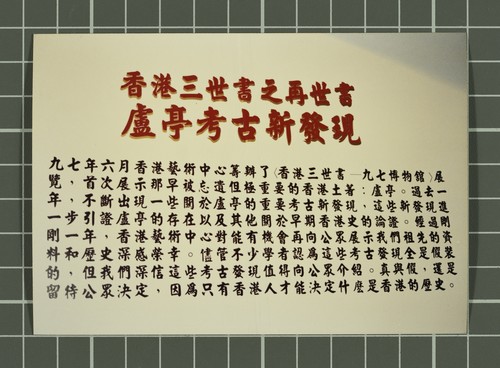 香港三世書之再世書
盧亭考古新發現
九七年六月香港藝術中心籌辦了〈香港三世書—九七博物館〉展
覽,首次展示那早被遺忘但極重要的香港土著:盧亭。過去一
年,不斷出現一些 盧亭的重要考古新發現,這些新發現進
一步引證 盧亭 存在以及其他關於早期香港史的論證。經過剛
剛 年,香港藝術中心 能有機會再向公眾展示我們祖先的資
料和歷史,深感榮幸。儘管不少學者認為這些考古發現全是假裝
的,但我們深信這些考古發現值得向公眾介紹。真與假,還是
留待公眾決定,因為只有香港人才能決定什麼是香港的歷史。